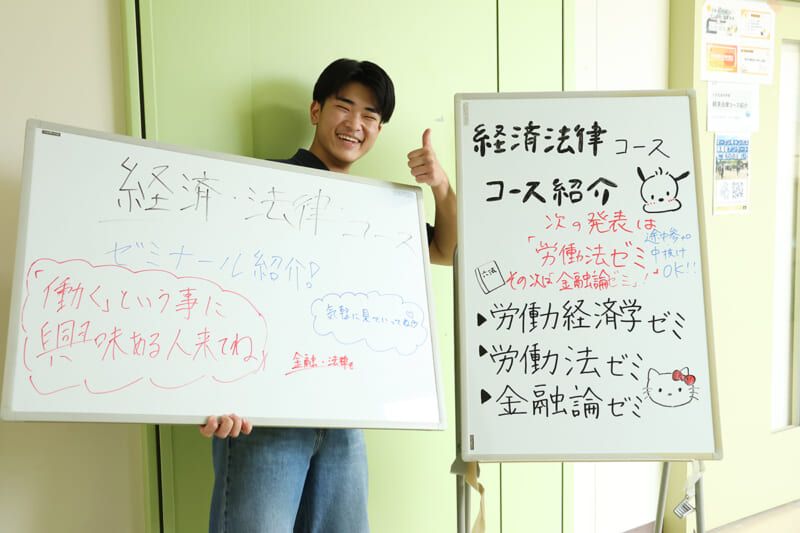 経済・法律コース
ゼミナール紹介!
「働く」という事に
興味ある人来てね
気軽に見ていってね
金融・法律も
経済法律コース
コース紹介
次の発表は
「労働法ゼミ」
その次は「金融論ゼミ」!
途中参加
中抜け
OK!!
六法
▶労働経済学ゼミ
▶労働法ゼミ
▶金融論ゼミ